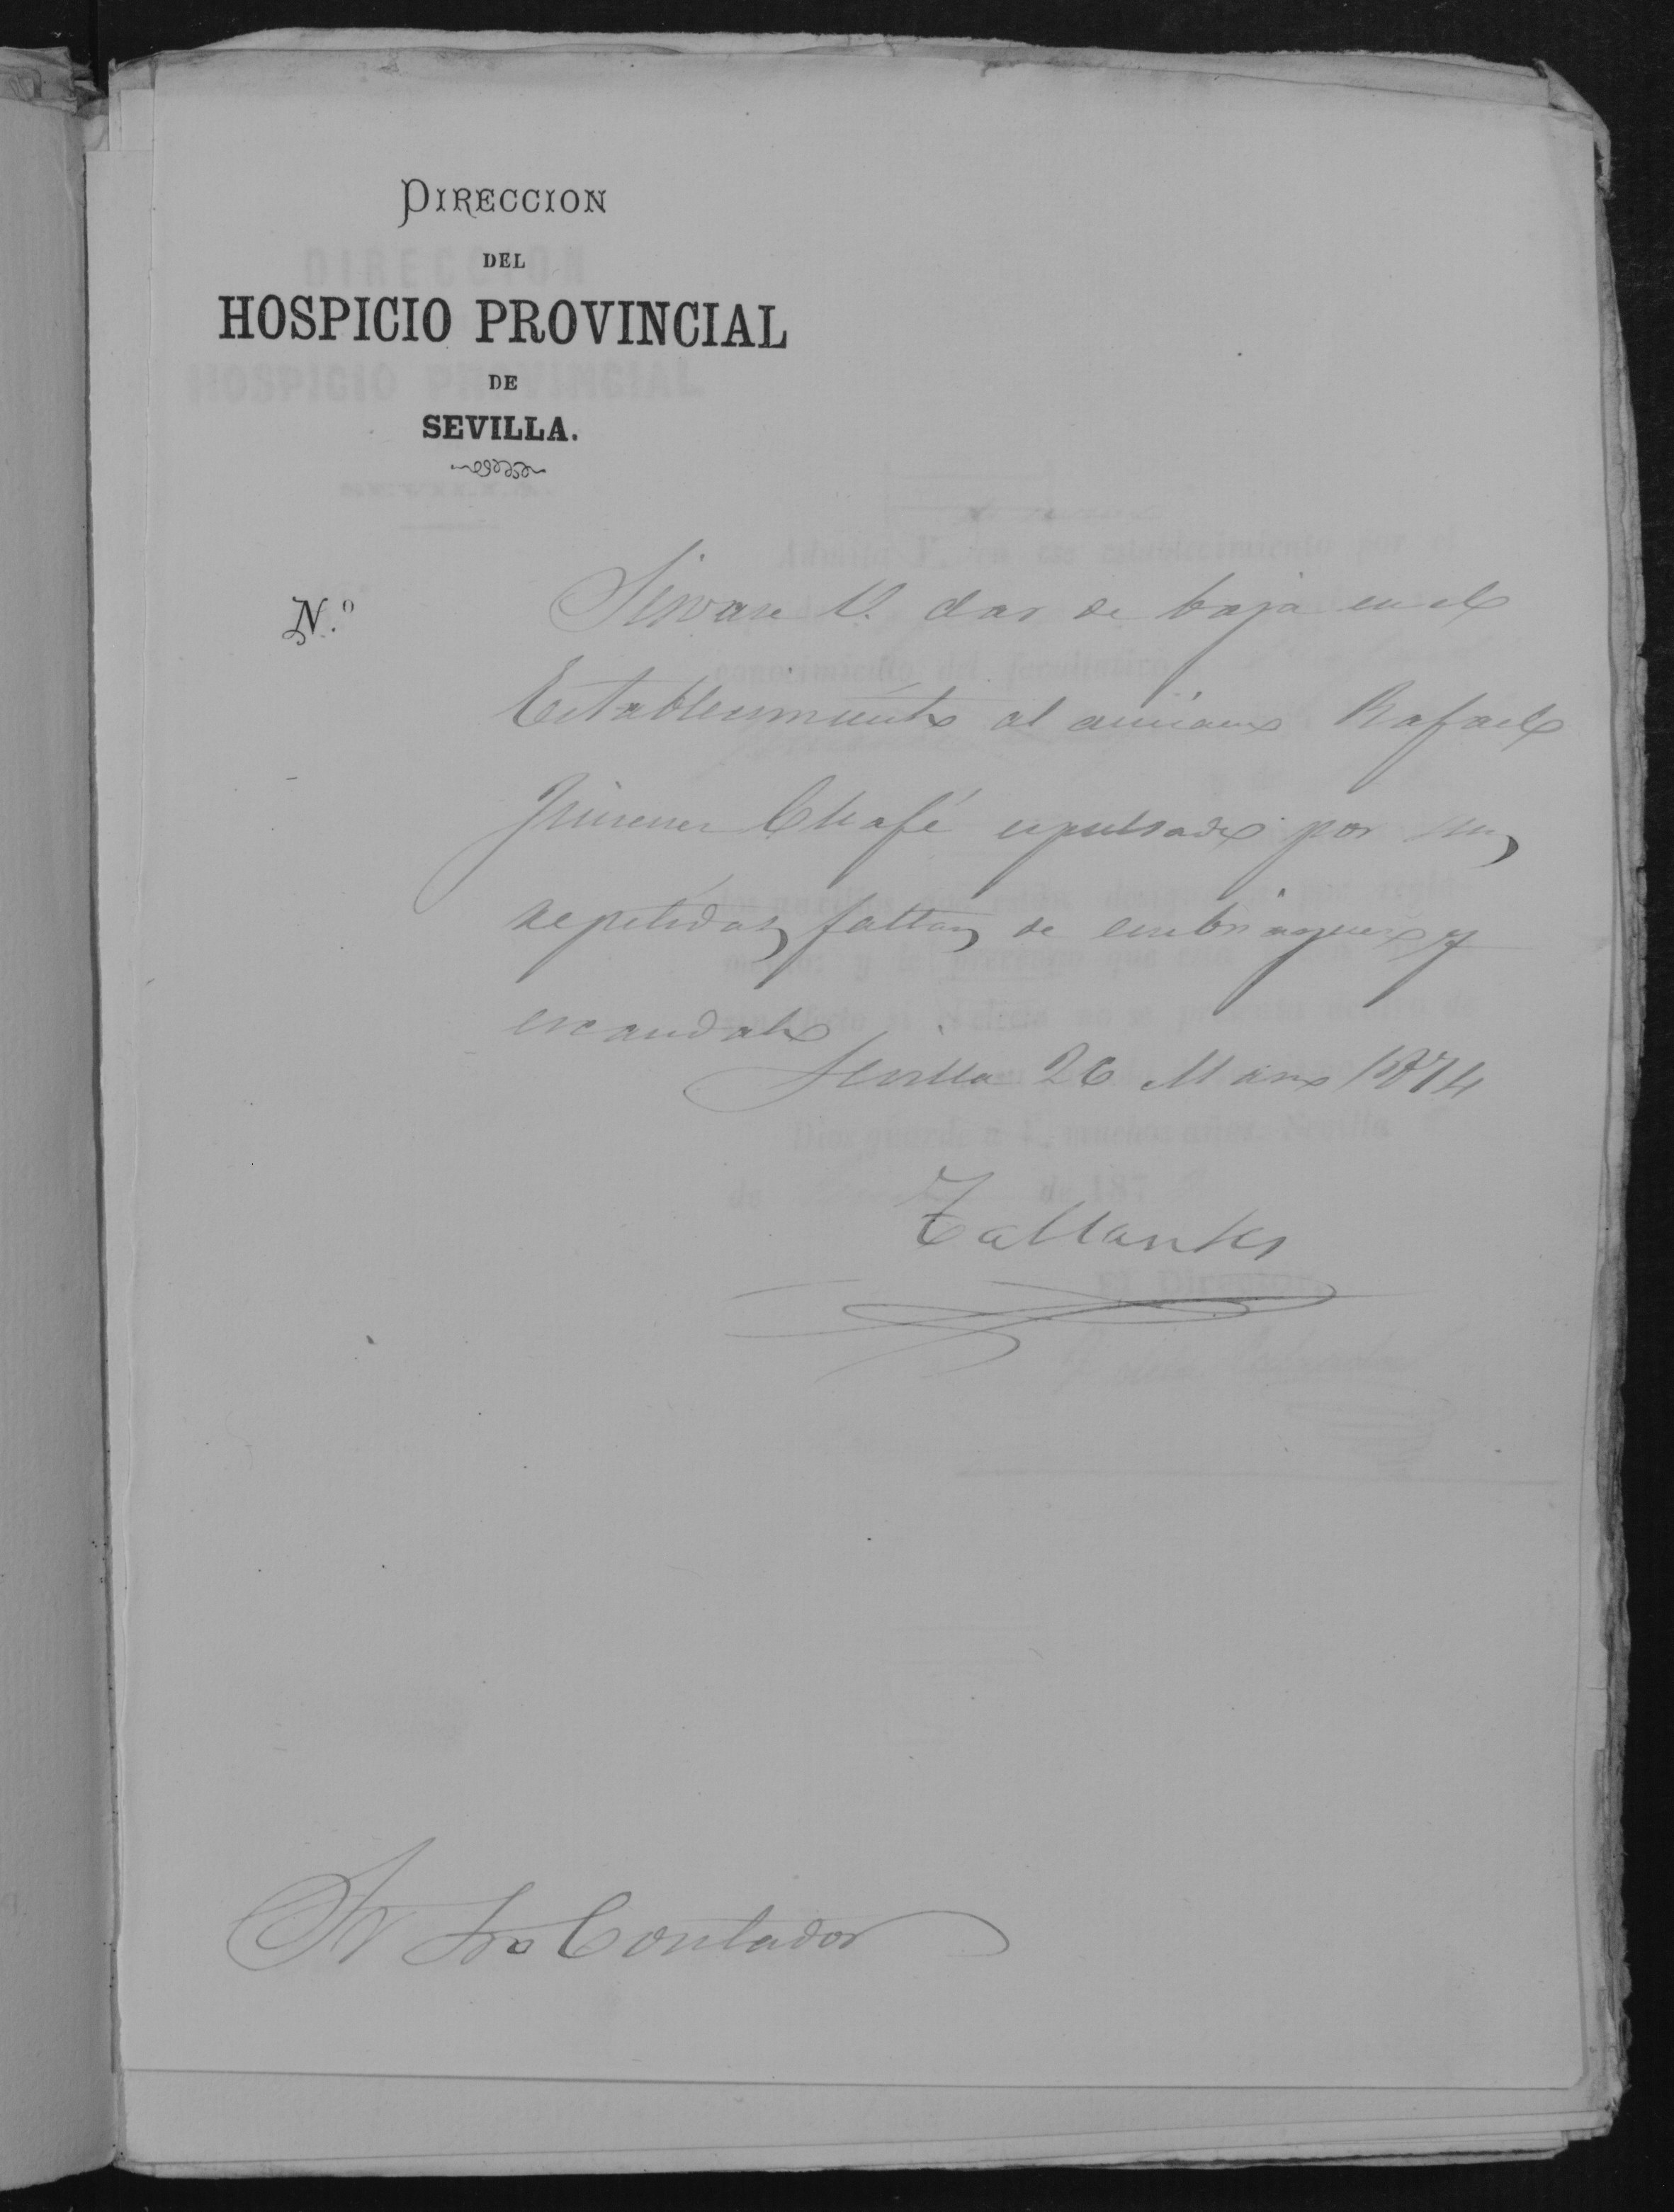 DIRECCION
DEL
HOSPICIO PROVINCIAL
DE
SEVILLA.
N.º
Sirvase V. dar de baja en el
Establecimiento al anciano Rafael
Jimenez Chafé espulsado por sus
repetidas faltas de embriaguez y
escandalo
Sevilla 26 Marzo 1874
Sr Contador